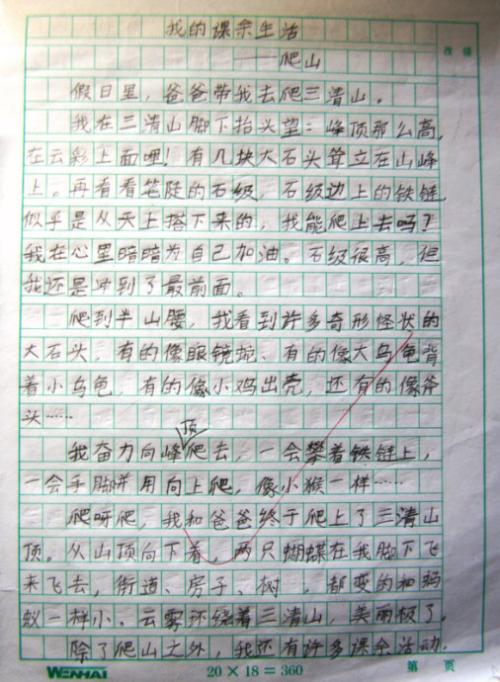 我的课余生活
——爬山
假日里，爸爸带我去爬三清山。
我在三清山脚下抬头望：峰顶那么高，
在云彩上面哩！有几块大石头耸立在山峰
上。再看看笔陡的石级，石级边上的铁链，
似乎是从天上搭下来的，我能爬上去吗？
我在心里暗暗为自己加油。石级很高，但
我还是冲到了最前面。
爬到半山腰，我看到许多奇形怪状的
大石头，有的像眼镜蛇、有的像大乌龟背
着小乌龟，有的像小鸡出壳，还有的像斧
头……
顶
我奋力向峰爬去，一会攀着铁链上，
一会手脚并用向上爬，像小猴一样……
爬呀爬，我和爸爸终于爬上了三清山
顶。从山顶向下看，两只蝴蝶在我脚下飞
来飞去，街道、房子、树，都变的和蚂
蚁一样小。云雾环绕着三清山，美丽极了。
除了爬山之外，我还有许多课余活动。
WENHAI 20×18=360 第 页